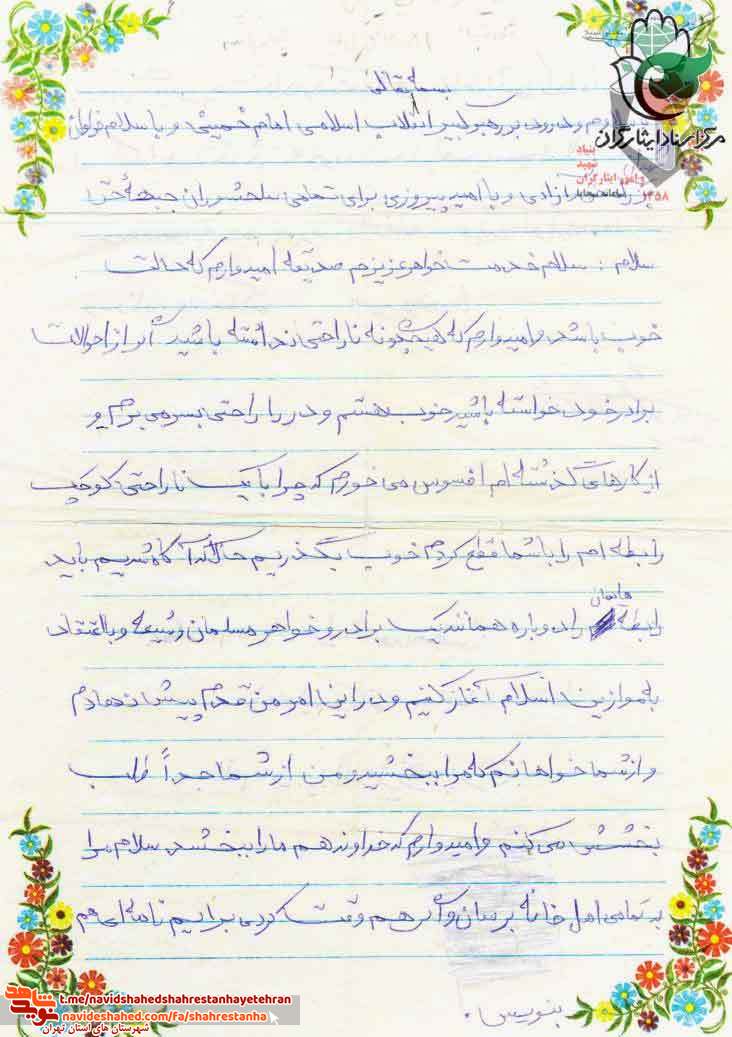 بسمه تعالی
سلام و درود بر رهبر کبیر انقلاب اسلامی امام خمینی و با سلام فراوان
آزادی و با امید پیروزی برای تمامی سلحشوران جبهه حق
سلام : سلام خدمت خواهر عزیزم صدیقه امیدوارم که حالت
خوب باشد و امیدوارم که هیچگونه ناراحتی نداشته باشید اگر از احوالات
برادر خود خواسته باشید خوب هستم و در راحتی بسر می برم و
از کارهای گذشته ام افسوس می خورم که چرا با یک ناراحتی کوچک
رابطه ام را با شما قطع کردم خوب بگذریم حال که آگاه شدیم باید
رابطه هایمان را دوباره همانند یک برادر و خواهر مسلمان و شیعه و با اعتقاد
به موازین اسلام آغاز کنیم و در این امر من قدم پیش نهادم
و از شما خواهانم که مرا ببخشید و من از شما جداً طلب
بخشش می کنم و امیدوارم که خداوند هم ما را ببخشد. سلام مرا
به تمامی اهل خانه برسان و اگر هم وقت کردی برایم نامه ای هم
بنویس .
مرکز اسناد ایثارگران
بنیاد
شهید
و امور ایثارگران
۱۳۵۸
نوید شاهد
t.me/navidshahedshahrestanhayetehran
navideshahed.com/fa/shahrestanha
شهرستان های استان تهران